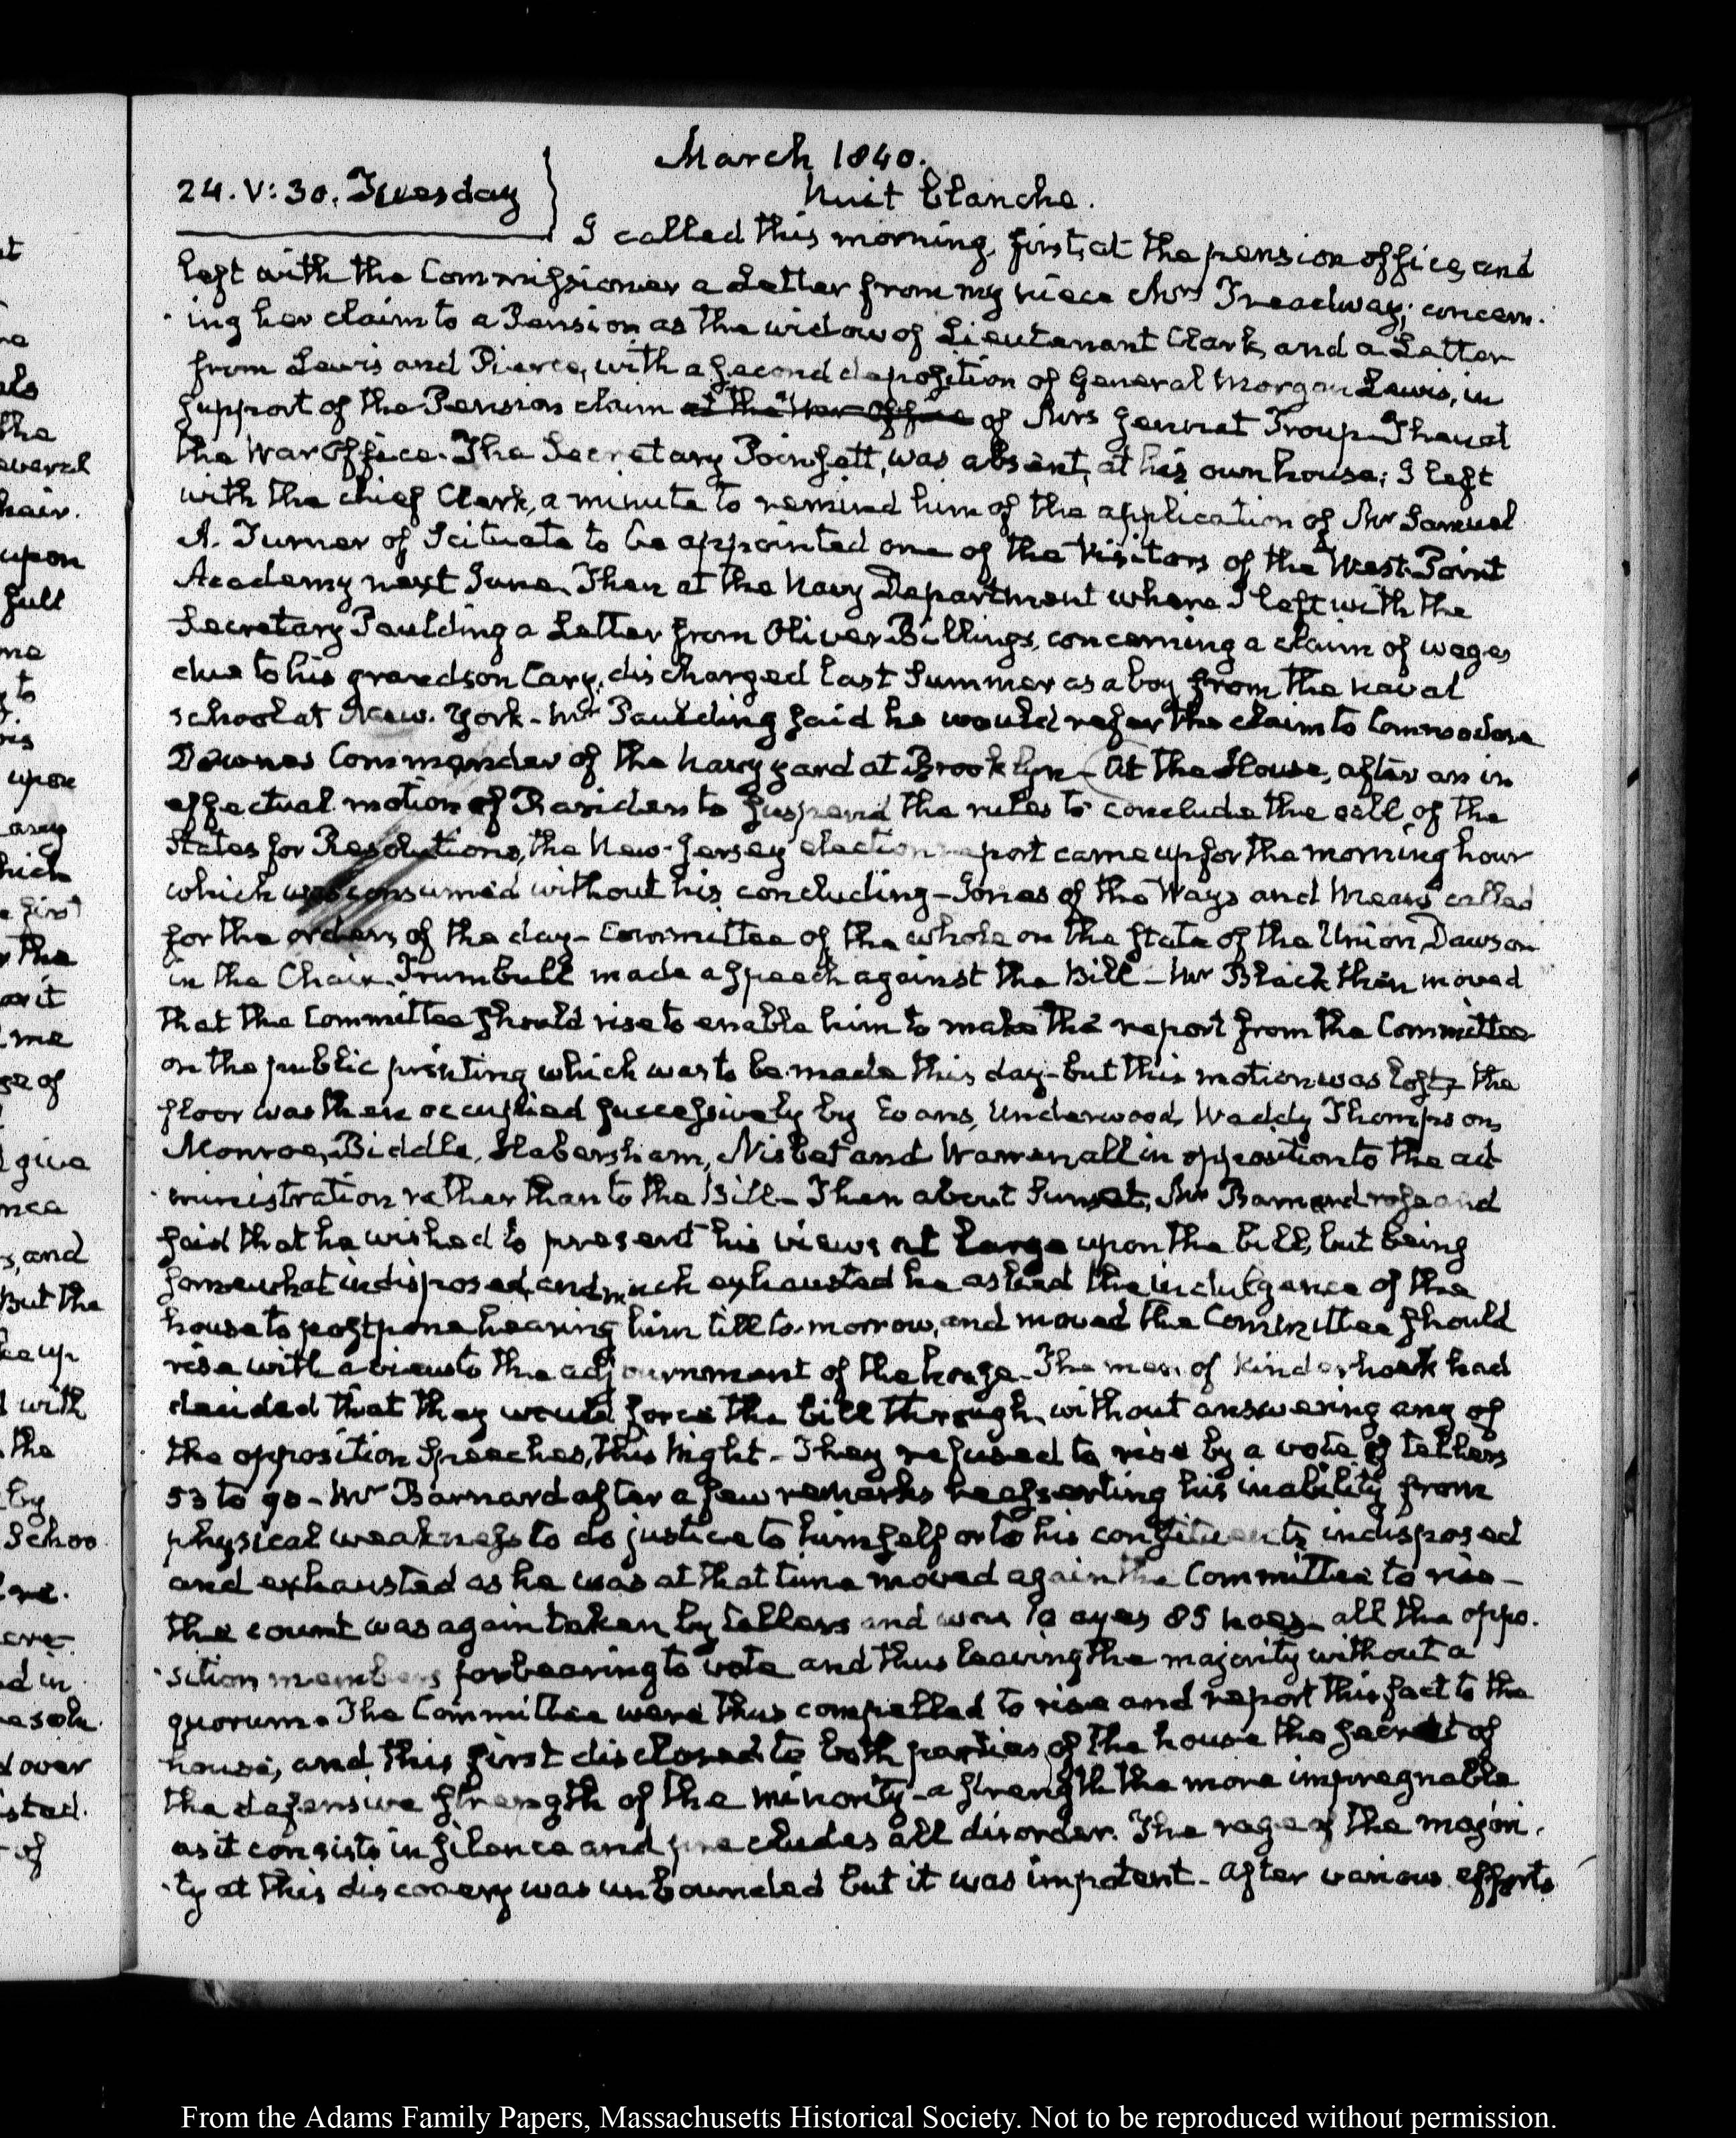 March 1840.
24. V:30. Tuesday
Nuit blanche.
I called this morning, first, at the pension office, and
left with the Commissioner a Letter from my niece Mrs Treadway; concern-
ing her claim to a Pension as the widow of Lieutenant Clark, and a Letter
from Lewis and Pierce, with a second deposition of General Morgan Lewis, in
support of the Pension claim at the War Office of Mrs General Troup—Then at
the War Office. The Secretary Poinsett, was absent, at his own house; I left
with the chief Clerk, a minute to remind him of the application of Mr Samuel
A. Turner of Scituate to be appointed one of the Visitors of the West-Point
Academy next June. Then at the Navy Department where I left with the
Secretary Paulding a Letter from Oliver Billings, concerning a claim of wages
due to his grandson Cary, discharged last Summer as a boy from the naval
school at New-York—Mr Paulding said he would refer the claim to Commodore
Downes Commander of the navy yard at Brooklyn—At the House, after an in
effectual motion of Randen to suspend the rules to conclude the call of the
States for Resolutions, the New-Jersey election report came up for the morning hour
which was consumed without his concluding—Jones of the Ways and Means called
for the orders of the day—Committee of the whole on the state of the Union, Dawson
in the Chair. Trumbull made a speech against the Bill—Mr Black then moved
that the Committee should rise to enable him to make the report from the Committee
on the public printing which was to be made this day—but this motion was lost, the
floor was then occupied successively by Evans, Underwood, Waddy Thompson,
Monroe, Biddle, Habersham, Nisbet and Warren, all in opposition to the ad
ministration rather than to the Bill—Then about Sunset, Mr Barnard rose and
said that he wished to present his views at large upon the bill, but being
somewhat indisposed, and much exhausted he asked the indulgence of the
house to postpone hearing him till to-morrow, and moved the Committee should
rise with a view to the adjournment of the house—The men of Kinderhook had
decided that they would force the bill through, without answering any of
the opposition speeches, this Night—They refused to rise by a vote of tellers
53 to 90—Mr Barnard after a few remarks reasserting his inability from
physical weakness to do justice to himself or to his constituents, indisposed
and exhausted as he was at that time moved again the Committee to rise—
the count was again taken by tellers and was 10 ayes 85 noes—all the oppo-
sition members forbearing to vote and thus leaving the majority without a
quorum. The Committee were thus compelled to rise and report this fact to the
house; and this first disclosed to both parties of the house the secret of
the defensive strength of the minority—a strength the more impregnable
as it consists in silence and precludes all disorder. The rage of the majori-
ty at this discovery was unbounded but it was impotent—after various efforts
From the Adams Family Papers, Massachusetts Historical Society. Not to be reproduced without permission.